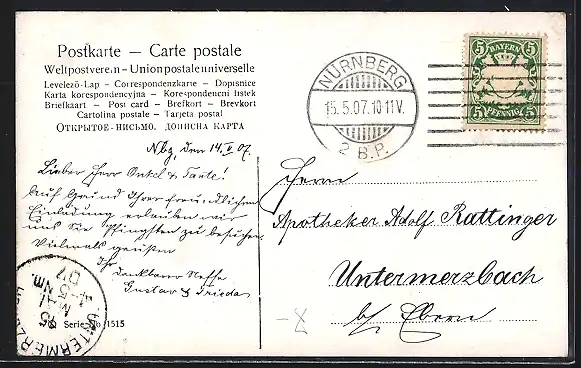 Postkarte — Carte postale
Weltpostverein - Union postale universelle
Levelező-Lap - Correspondenzkarte - Dopisnice
Karta korespondencyjna - Korespondenční lístek
Briefkaart - Post card - Brefkort - Brevkort
Cartolina postale - Tarjeta postal
ОТКРЫТОЕ-ПИСЬМО. ДОПИСНА КАРТА
NÜRNBERG
15.5.07.10-11V.
2 B.P.
5 BAYERN 5
5 PFENNIG 5
Nbg, den 14. V. 07.
Lieber Herr Onkel & Tante!
Auf Grund Ihrer freundlichen
Einladung erlauben wir
uns Sie Pfingsten zu besuchen.
Vielmals grüßen
Ihr
dankbarer Neffe
Gustav & Frieda
Herrn
Apotheker Adolf Rattinger
Untermerzbach
b/ Ebern
UNTERMERZBACH
15
MAI
4-5 NM.
07
Serie No 1515